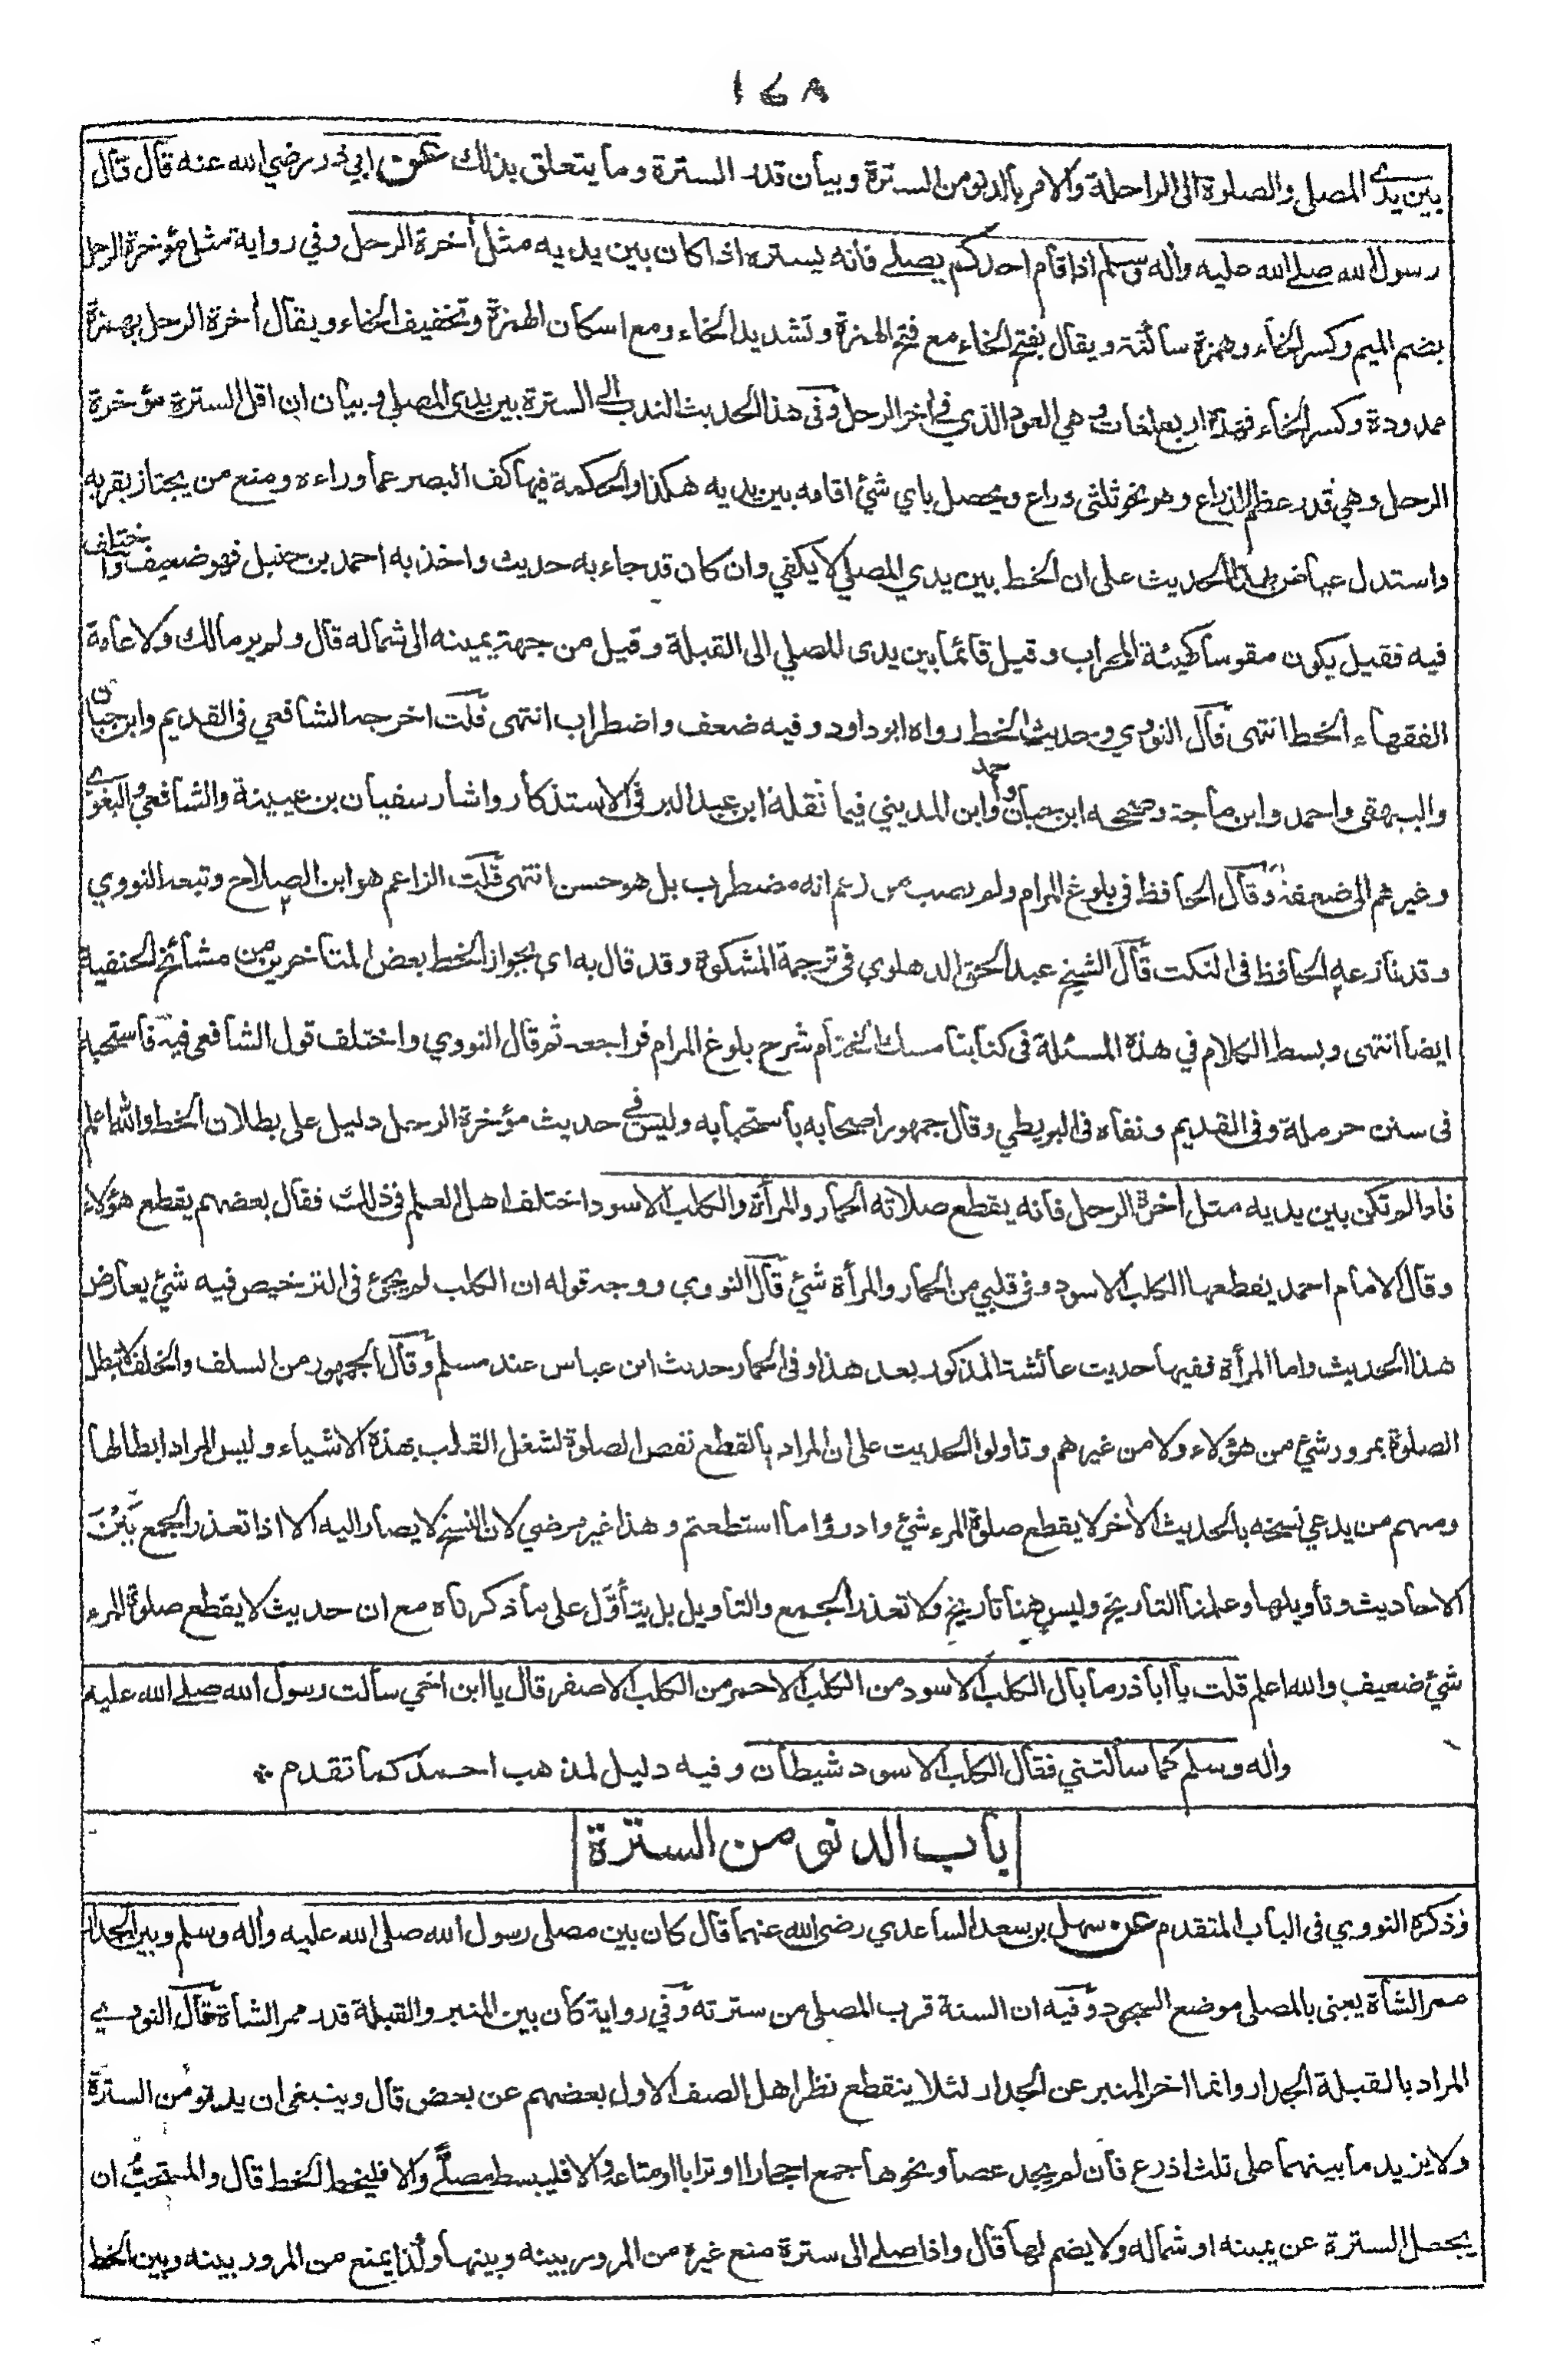 ١٤٨
بين يدي المصلي والصلوة الى الراحلة والامر بالدنو من السترة وبيان قدر السترة وما يتعلق بذلك عن ابي ذر رضي الله عنه قال قال
رسول الله صلے الله عليه واله وسلم اذا قام احدكم يصلے فانه يستره اذا كان بين يديه مثل أخرة الرحل وفي رواية مثل مؤخرة الرحل
بضم الميم وكسر الخاء وهمزة ساكنة ويقال بفتح الخاء مع فتح الهمزة وتشديد الخاء ومع اسكان الهمزة وتخفيف الخاء ويقال أخرة الرحل بهمزة
ممدودة وكسر الخاء فهذه اربع لغات وهي العود الذي في اخر الرحل وفى هذا الحديث الندب الى السترة بين يدى المصلي وبيان ان اقل السترة مؤخرة
الرحل وهي قدر عظم الذراع وهو نحو ثلثى ذراع ويحصل باي شئ اقامه بين يديه هكذا والحكمة فيها كف البصر عما وراءه ومنع من يجتاز بقربه
واستدل عياض بهذا الحديث على ان الخط بين يدي المصلي لا يكفي وان كان قد جاء به حديث واخذ به احمد بن حنبل فهو ضعيف واختلف
فيه فقيل يكون مقوسا كهيئة المحراب وقيل قائما بين يدى المصلي الى القبلة وقيل من جهة يمينه الى شماله قال ولم ير مالك ولا عامة
الفقهاء الخط انتهى قال النووي وحديث الخط رواه ابو داود وفيه ضعف واضطراب انتهى قلت اخرجه الشافعي فى القديم وابن حبان
والبيهقى واحمد وابن ماجة وصححه ابن حبان واحمد وابن المديني فيما نقله ابن عبد البر فى الاستذكار واشار سفيان بن عيينة والشافعي والبغوي
وغيرهم الى ضعفه وقال الحافظ فى بلوغ المرام ولم يصب من زعم انه مضطرب بل هو حسن انتهى قلت الزاعم هو ابن الصلاح وتبعه النووي
وقد نازعه الحافظ فى النكت قال الشيخ عبد الحق الدهلوي فى ترجمة المشكوة وقد قال به اي بجواز الخط بعض المتاخرين من مشائخ الحنفية
ايضا انتهى وبسط الكلام في هذه المسئلة فى كتابنا مسك الختام شرح بلوغ المرام فراجعه ثم قال النووي واختلف قول الشافعى فيه فاستحبه
فى سنن حرملة وفى القديم ونفاه فى البويطي وقال جمهور اصحابه باستحبابه وليس في حديث مؤخرة الرحل دليل على بطلان الخط والله اعلم
فاذا لم تكن بين يديه مثل أخرة الرحل فانه يقطع صلاته الحمار والمرأة والكلب الاسود اختلف اهل العلم فى ذلك فقال بعضهم يقطع هؤلاء
وقال الامام احمد يقطعها الكلب الاسود وفى قلبي من الحمار والمرأة شئ قال النووي ووجه قوله ان الكلب لم يجئ فى الترخيص فيه شئ يعارض
هذا الحديث واما المرأة ففيها حديث عائشة المذكور بعد هذا وفى الحمار حديث ابن عباس عند مسلم وقال الجمهور من السلف والخلف لا تبطل
الصلوة بمرور شئ من هؤلاء ولا من غيرهم وتاولوا الحديث على ان المراد بالقطع نقص الصلوة لشغل القلب بهذه الاشياء وليس المراد ابطالها
ومنهم من يدعي نسخه بالحديث الأخر لا يقطع صلوة المرء شئ وادرؤا ما استطعتم وهذا غير مرضي لان النسخ لا يصار اليه الا اذا تعذر الجمع بين
الاحاديث وتأويلها وعلمنا التاريخ وليس هنا تاريخ ولا تعذر الجمع والتاويل بل يتأول على ما ذكرناه مع ان حديث لا يقطع صلوة المرء
شئ ضعيف والله اعلم قلت يا أبا ذر ما بال الكلب الاسود من الكلب الاحمر من الكلب الاصفر قال يا ابن اخي سألت رسول الله صلے الله عليه
واله وسلم كما سألتني فقال الكلب الاسود شيطان وفيه دليل لمذهب احمد كما تقدم *
باب الدنو من السترة
وذكره النووي فى الباب المتقدم عن سهل بن سعد الساعدي رضى الله عنهما قال كان بين مصلى رسول الله صلى الله عليه واله وسلم وبين الجدار
ممر الشاة يعنى بالمصلى موضع السجود وفيه ان السنة قرب المصلى من سترته وفي رواية كان بين المنبر والقبلة قدر ممر الشاة قال النووي
المراد بالقبلة الجدار وانما اخر المنبر عن الجدار لئلا ينقطع نظر اهل الصف الاول بعضهم عن بعض قال وينبغى ان يدنو من السترة
ولا يزيد ما بينهما على ثلث اذرع فان لم يجد عصا ونحوها جمع احجارا او ترابا او متاعه والا فليبسط مصلے والا فليخط الخط قال والمستحب ان
يجعل السترة عن يمينه او شماله ولا يضم لها قال واذا صلے الى سترة منع غيره من المرور بينه وبينها ولذا يمنع من المرور بينه وبين الخط